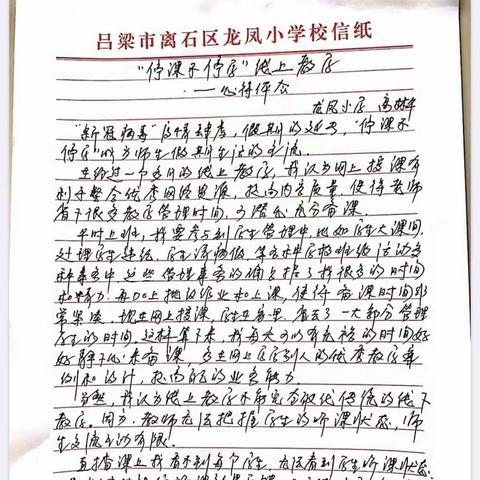 吕梁市离石区龙凤小学校信纸
"停课不停学"线上教学
——心得体会
龙凤小学 高
"新冠病毒"疫情，假期的延长，"停课不
停学"成为师生假期生活的主流。
在经过一个多月的线上教学，我认为网上授课有
利于整合优秀网络资源，提高内容质量，使得老师
省下很多教学管理时间，可潜心充分备课。
平时上班，我要参与到学生管理中，比如学生大课间，
处理学生，学生请病假，等和学校班级活动多
种事务中，这些管理事务的确占据了我很多的时间
和精力，再加上批改作业和上课，使得备课时间非
常紧凑，现在网上授课，学生在家里，省去了一大部分管理
学生的时间。这样算下来，我每天可以有充裕的时间好
好静下心来备课，多在网上学学别人的优秀教学案
例和设计，提高自己的业务能力
当然，我认为线上教学不能完全取代传统的线下
教学。因为，教师无法把握学生的听课状态，师
生交流互动有限。
直播课上我看不到每个学生，无法看到学生听课状态